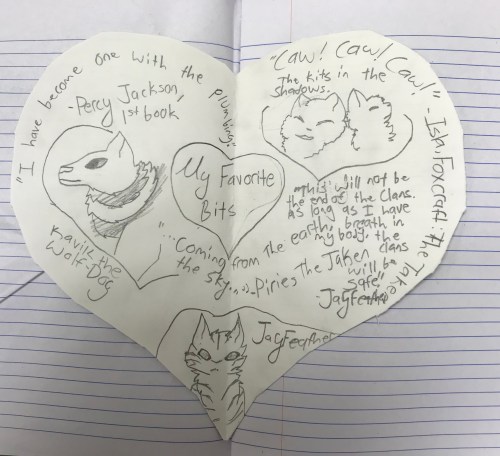 "I have become one with the plumbing."
-Percy Jackson,
1st book
"Caw! Caw! Caw!" - Isha, Foxcraft: The Taken
The kits in the
shadows.
My Favorite
Bits
Kavik the
Wolf-Dog
"...Coming from
the sky..." - Piries The Taken
"This will not be
the end of the Clans.
As long as I have
the earth, breath in
my body, the
clans
will be
safe"
-Jayfeather
Jayfeather